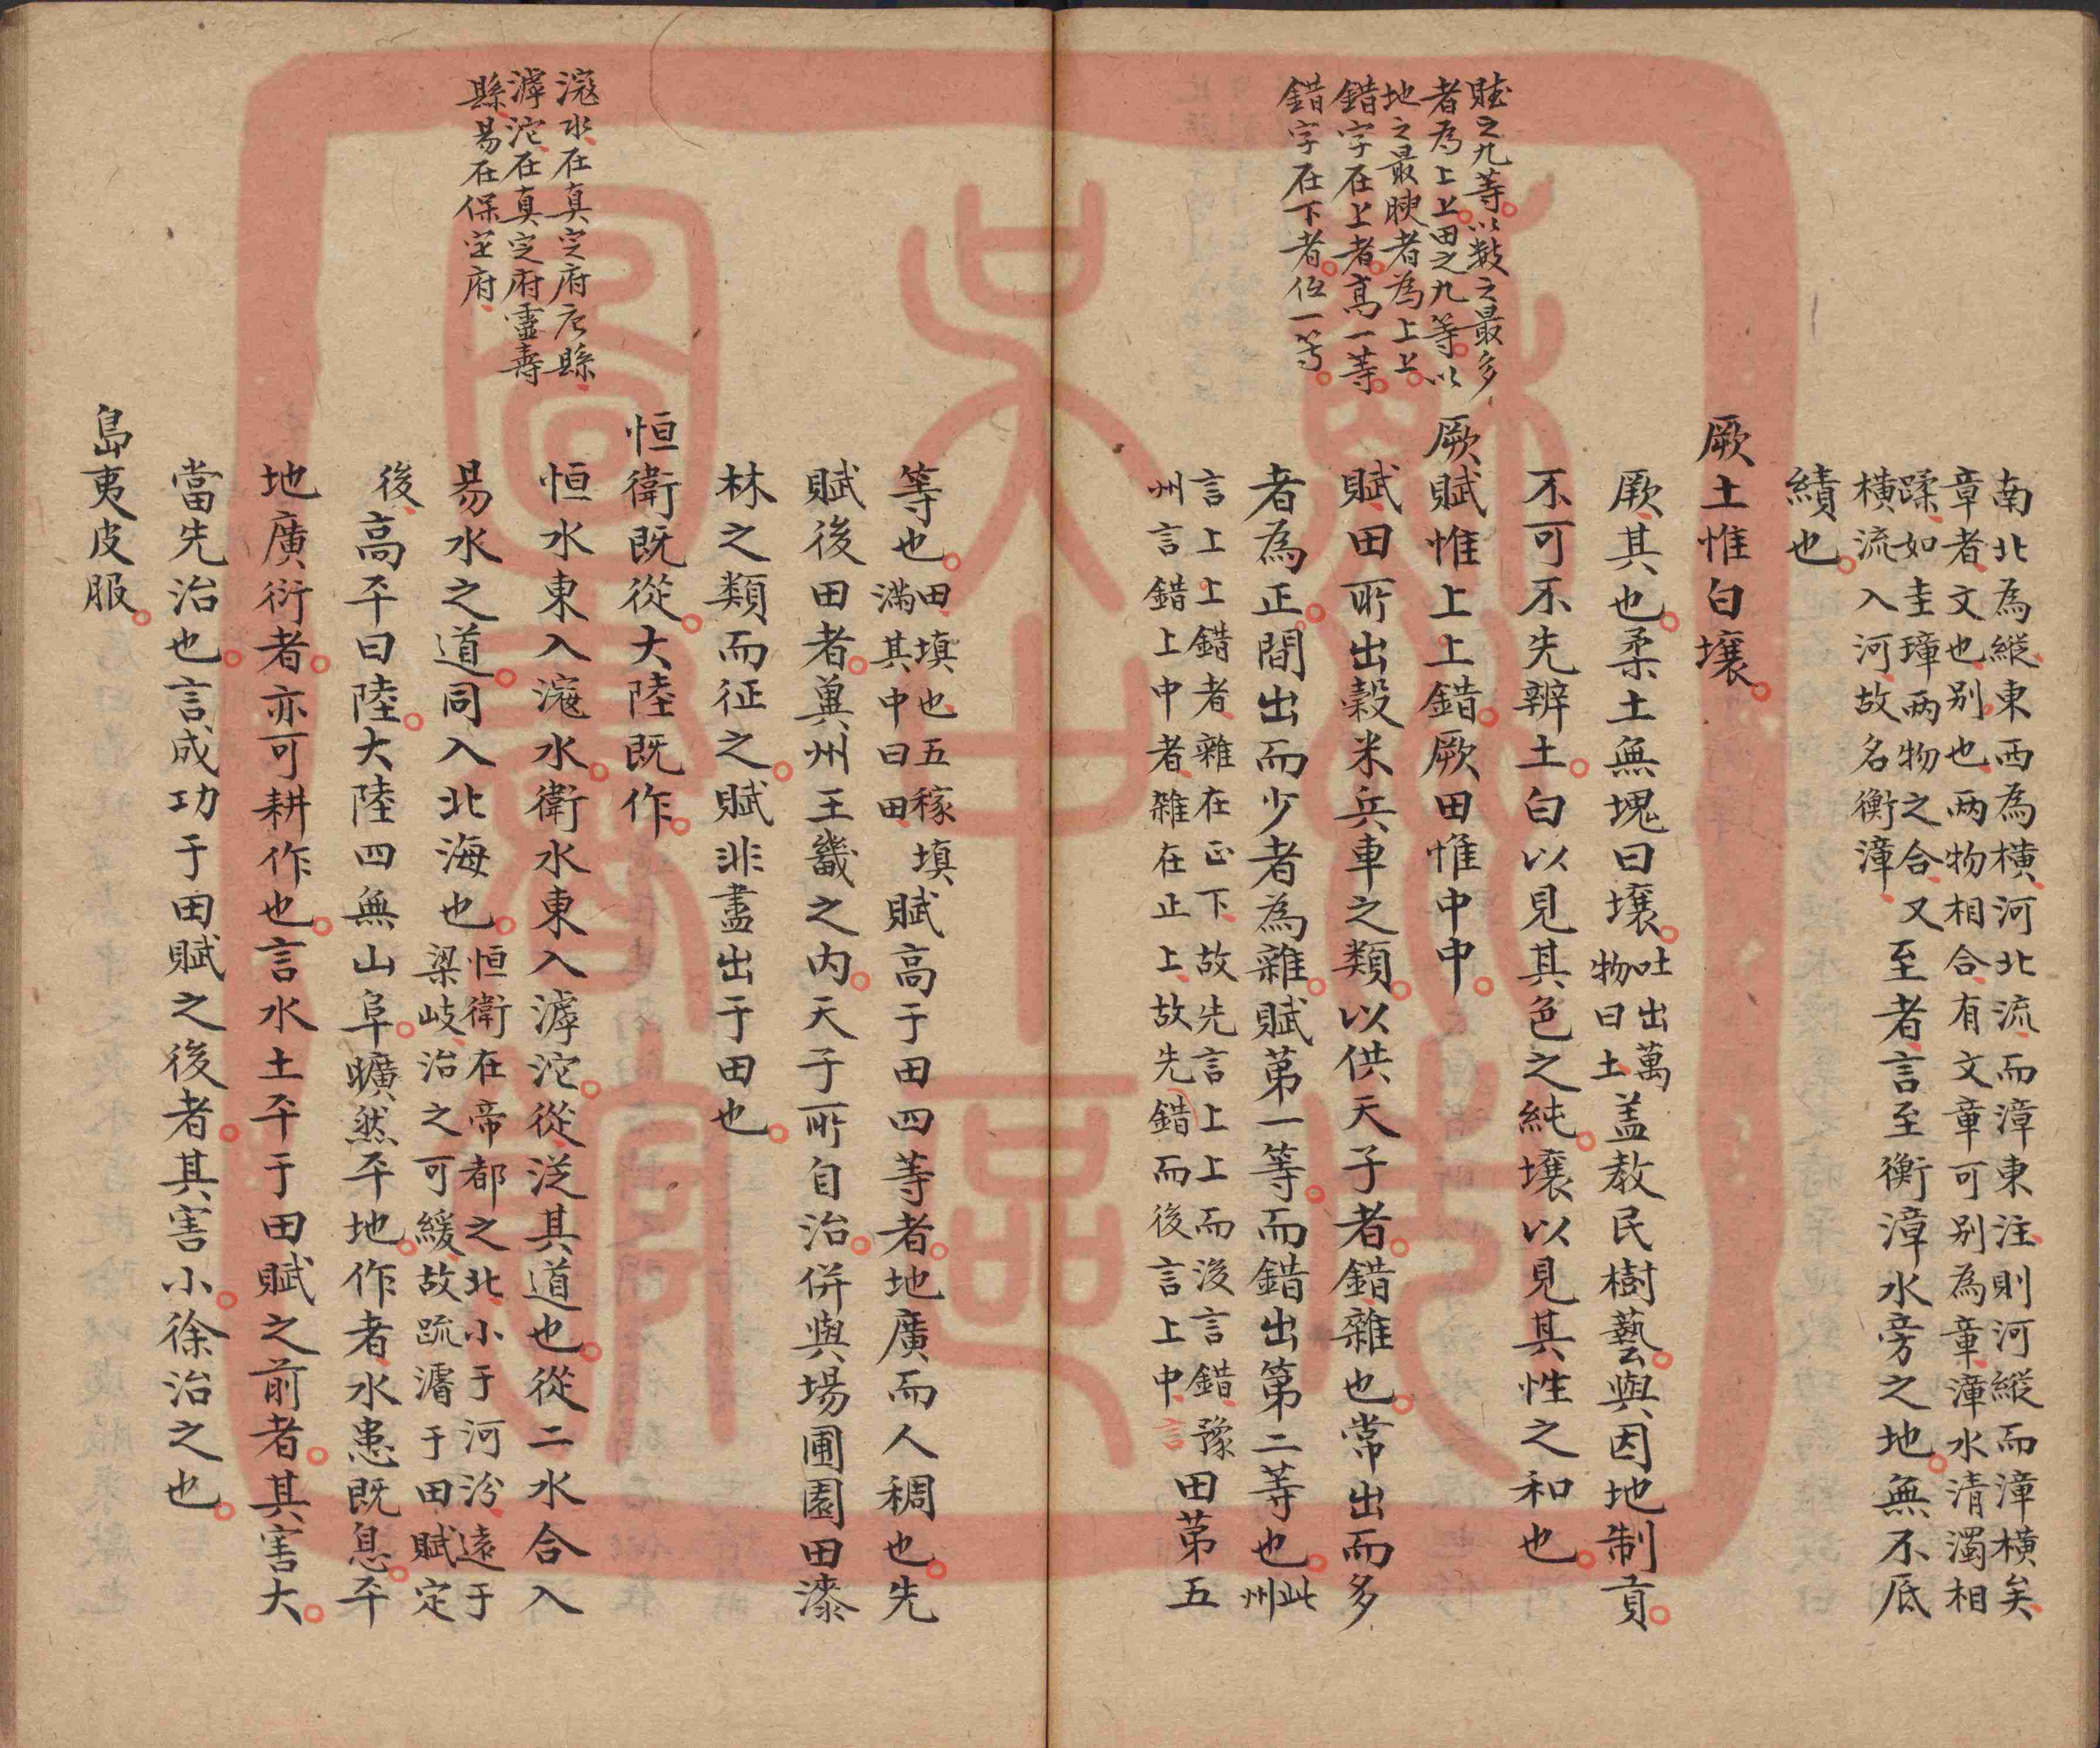 賦之九等以數之最多
者為上上田之九等以
地之最腴者為上上
錯字在上者高一等
錯字在下者低一等
南北為縱東西為橫河北流而漳東注則河縱而漳橫矣
章者文也别也兩物相合有文章可别為章漳水清濁相
蹂如圭璋兩物之合又
橫流入河故名衡漳
至者言至衡漳水旁之地無不底
績也
厥土惟白壤
厥其也柔土無塊曰壤
吐出萬
物曰土
盖教民樹藝與因地制貢
不可不先辨土白以見其色之純壤以見其性之和也
厥賦惟上上錯厥田惟中中
賦田所出穀米兵車之類以供天子者錯雜也常出而多
者為正間出而少者為雜賦第一等而錯出第二等也
此
州
言上上錯者雜在正下故先言上上而後言錯豫
州言錯上中者雜在正上故先錯而後言上中
言
田第五
等也
田填也五稼填
滿其中曰田
賦高于田四等者地廣而人稠也先
賦後田者冀州王畿之内天子所自治併與場圃園田漆
林之類而征之賦非盡出于田也
滱水在真定府唐縣
滹沱在真定府靈壽
縣易在保定府
恒衛既從大陸既作
恒水東入滱水衛水東入滹沱從從其道也從二水合入
易水之道同入北海也
恒衛在帝都之北小于河汾遠于
梁岐治之可緩故疏濬于田賦定
後
高平曰陸大陸四無山阜曠然平地作者水患既息平
地廣衍者亦可耕作也言水土平于田賦之前者其害大
當先治也言成功于田賦之後者其害小徐治之也
島夷皮服